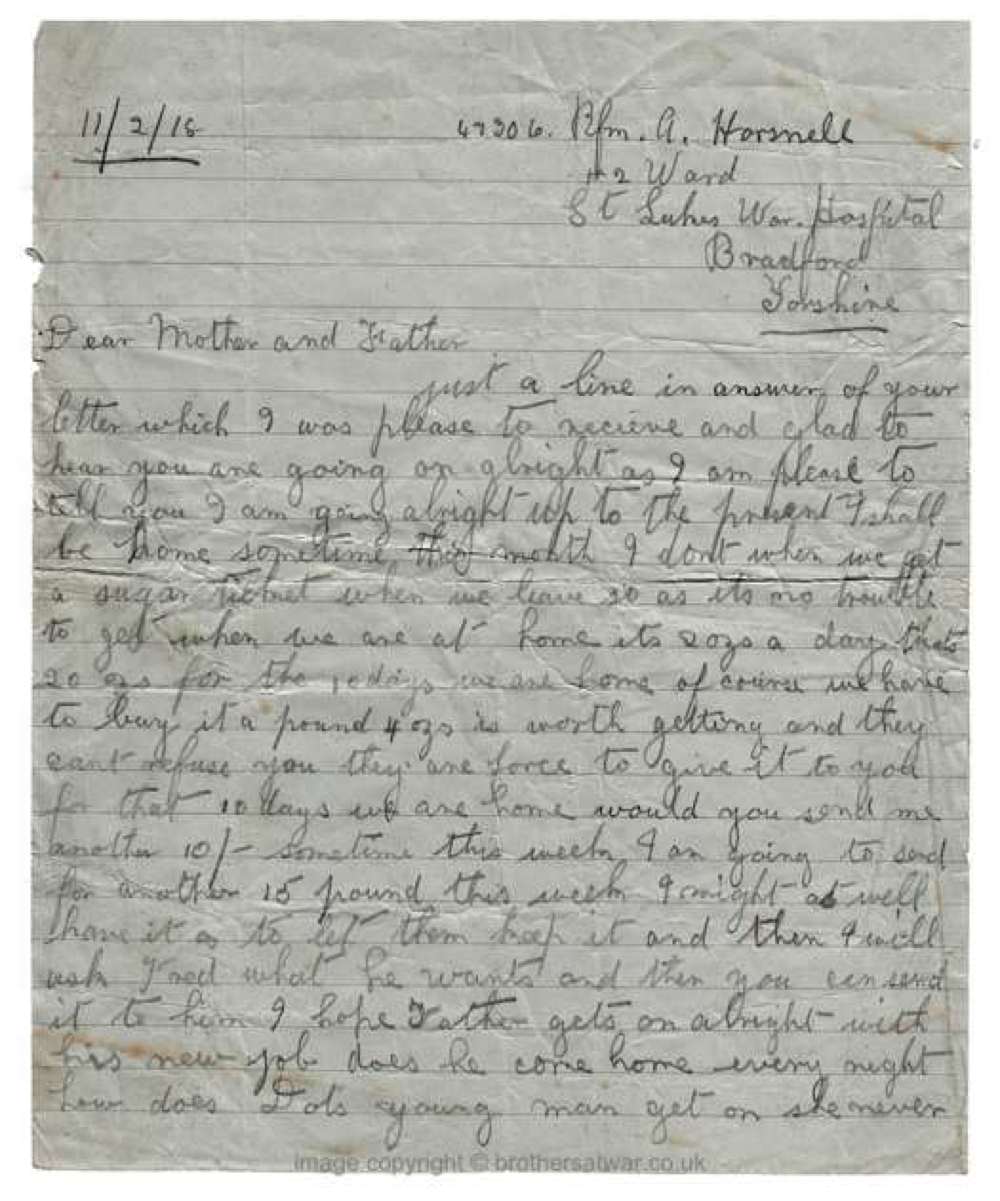 11/2/18 47306. Rfm. A. Horsnell
H 2 Ward
St Lukes War. Hospital
Bradford
Yorshire
Dear Mother and Father
just a line in answer of your
letter which I was please to recieve and glad to
hear you are going on alright as I am please to
tell you I am going alright up to the present I shall
be home sometime this month I dont when we get
a sugar when we leave so as its no trouble
to get when we are at home its 2ozs a day thats
20 ozs for the 10 days we are home of course we have
to buy it a pound 4 ozs is worth getting and they
cant refuse you they are force to give it to you
for that 10 days we are home would you send me
another 10/- sometime this week I am going to send
for another 15 pound this week I might as well
have it as to let them keep it and then I will
ask Fred what he wants and then you can send
it to him I hope Father gets on alright with
his new job does he come home every night
how does Dols young man get on she never
image copyright © brothersatwar.co.uk